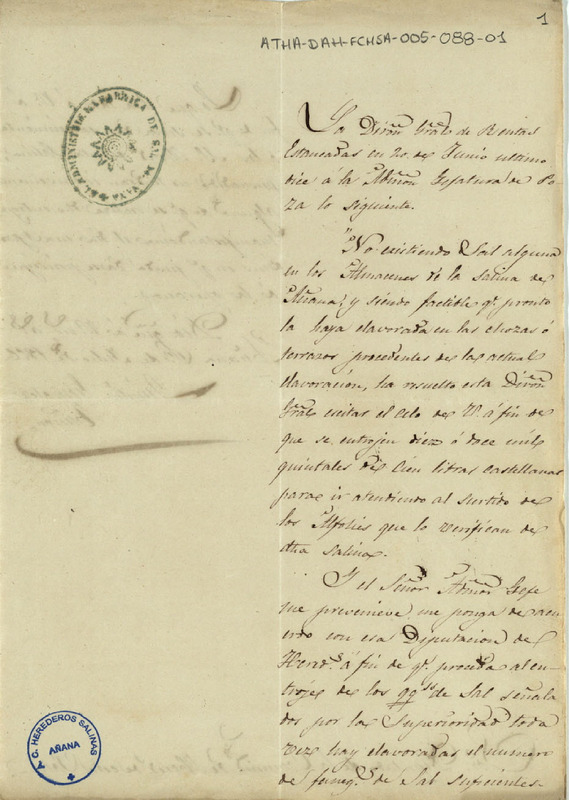 1
ATHA-DAH-FCHSA-005-088-01
La Dirōn Grāl de Rentas
Estancadas en 20 de Junio ultimo
dice á la Admōn Gefatura de Po
za lo siguiente.
"No existiendo Sal alguna
en los Almacenes de la salina de
Añana, y siendo factible q.e pronto
la haya elavorada en las chozas ó
terrazos procedentes de la actual
elavoración, ha resuelto esta Dirōn
Grāl escitar el celo de V. á fin de
que se entrojen diez ó doce mil
quintales de cien libras castellanas
para ir atendiendo al surtido de
los Alfolies que lo verifican de
dha salina.
Y el Señor Admōr Gefe
me previene me ponga de acu
erdo con esa Diputacion de
Hered.s á fin de q.e proceda al en-
troje de los qq.s de Sal señala
dos por la Superioridad toda
vez hay elavoradas el numero
de faneg.s de Sal suficientes-
A. C. HEREDEROS SALINAS
AÑANA